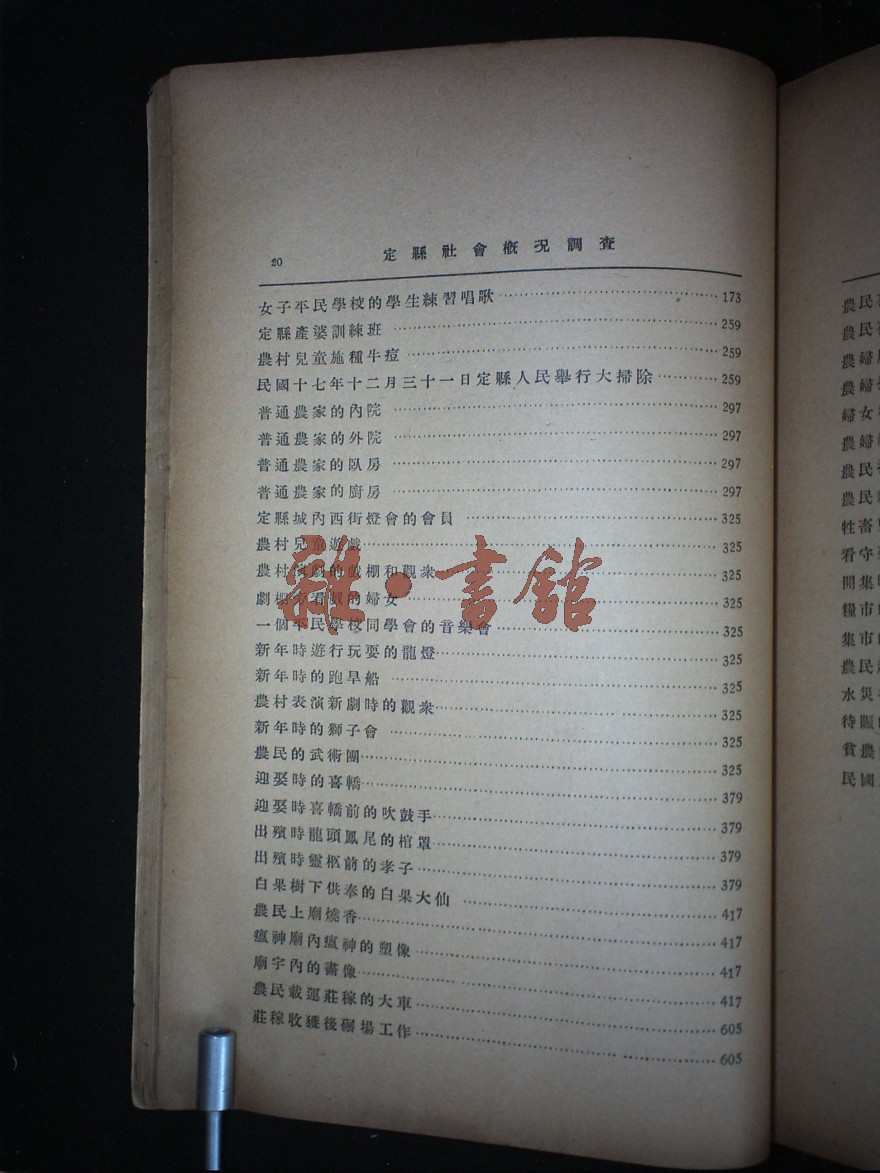 20 定縣社會概況調查
女子平民學校的學生練習唱歌 173
定縣產婆訓練班 259
農村兒童施種牛痘 259
民國十七年十二月三十一日定縣人民舉行大掃除 259
普通農家的內院 297
普通農家的外院 297
普通農家的臥房 297
普通農家的廚房 297
定縣城內西街燈會的會員 325
農村兒童遊戲 325
農村演劇的戲棚和觀衆 325
劇棚 看戲的婦女 325
一個平民學校同學會的音樂會 325
新年時遊行玩耍的龍燈 325
新年時的跑旱船 325
農村表演新劇時的觀衆 325
新年時的獅子會 325
農民的武術團 325
迎娶時的喜轎 379
迎娶時喜轎前的吹鼓手 379
出殯時龍頭鳳尾的棺罩 379
出殯時靈柩前的孝子 379
白果樹下供奉的白果大仙 417
農民上廟燒香 417
瘟神廟內瘟神的塑像 417
廟宇內的畫像 417
農民載運莊稼的大車 605
莊稼收穫後碾場工作 605
雜·書館
農民
農民
農婦
農婦
婦女
農婦
農民
農民
牲畜
看守
開集
糧市
集市的
農民
水災
待賑
貧農
民國